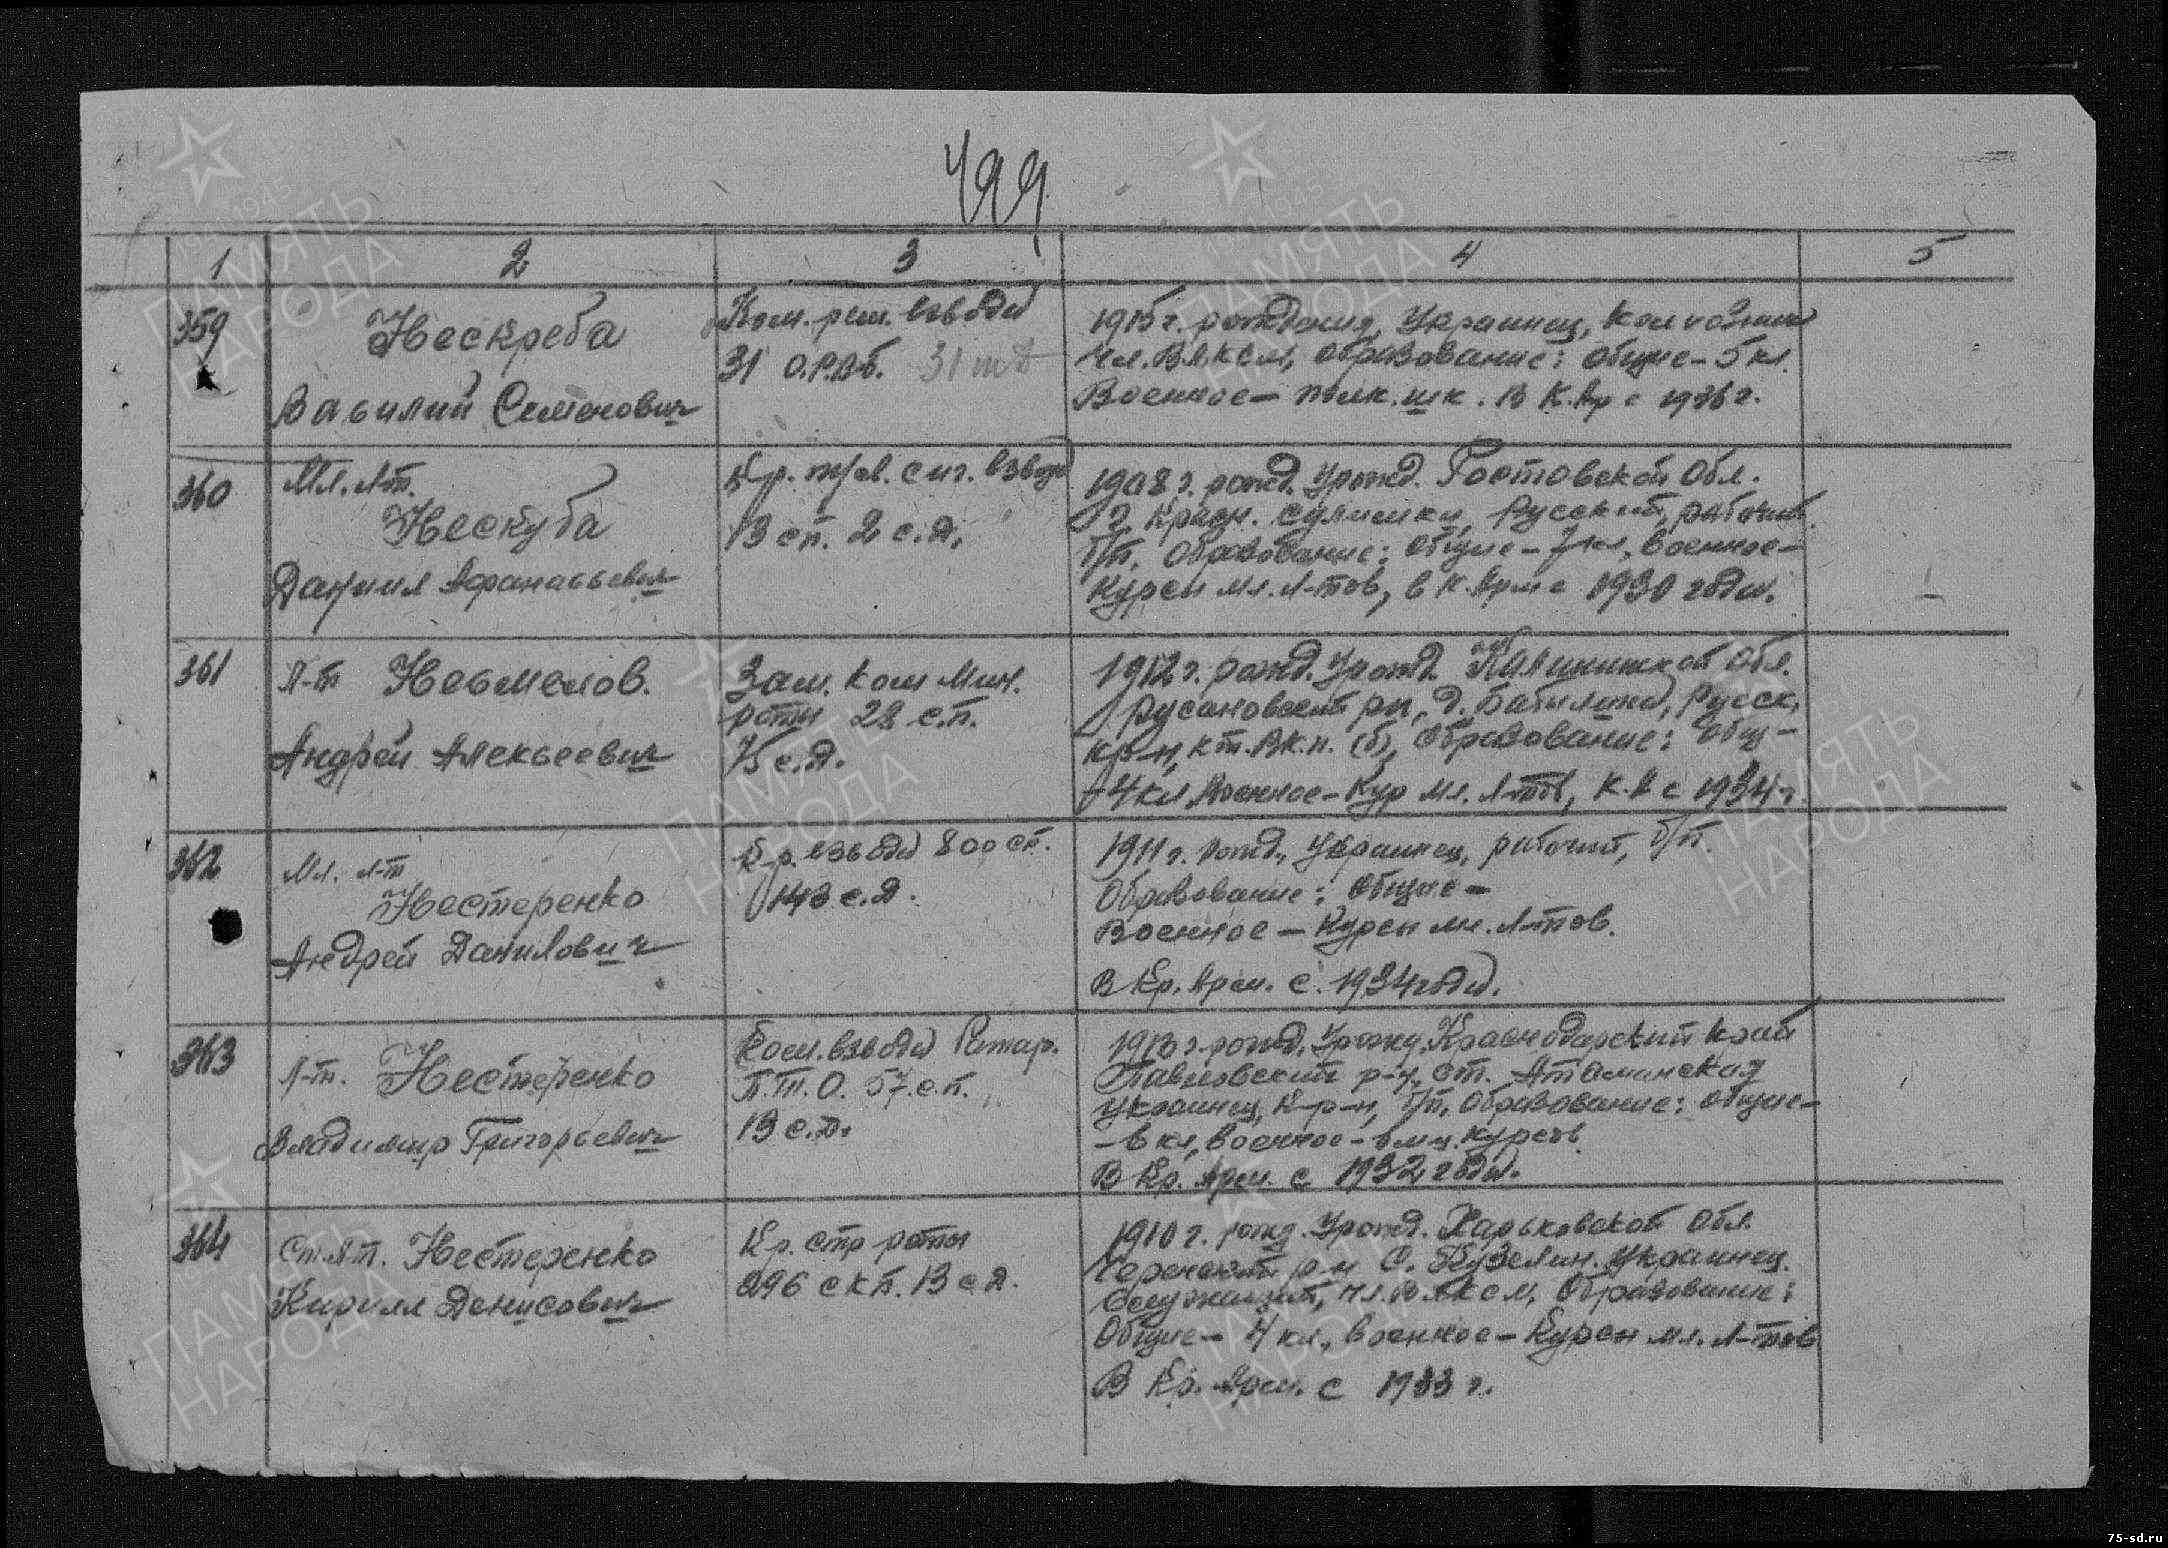 499
1 2 3 4 5
359
Нескреба
Василий Семенович
Ком. рем. взвода
31 О.Р.В.б. 31 тб
1915 г. рождения, Украинец, Колхозник
Чл. ВЛКСМ, Образование: Общие - 5 кл.
Военное - полк. шк. В К.Ар с 1936 г.
360
Мл. л-т.
Нескуба
Даниил Афанасьевич
Кр. пул. взвода
13 сп. 2 с.д.
1908 г. рожд. Урожд. Ростовской Обл.
г. Красн. Сулимки, Русский, рабочий
б/п, Образование: Общие - 7 кл, Военное -
Курсы мл. л-тов, в К. Арм с 1930 года.
361
Л-т Несмелов.
Андрей Алексеевич
Зам. Ком Мин.
роты 28 с.п.
75 с.д.
1912 г. рожд. Урожд. Калининской Обл.
д. Бабилино, Русск,
кр-н, кт. ВК.п. (б), Образование: Общ -
- 4 кл Военное - Кур мл. л-тов, К.А с 1934 г.
362
Мл. л-т
Нестеренко
Андрей Данилович
Кр. взвода 800 сп.
143 с.д.
1911 г. рожд., Украинец, рабочий, б/п.
Образование: Общие -
Военное - Курсы мл. л-тов.
В Кр. Арм. с 1934 года.
363
Л-т. Нестеренко
Владимир Григорьевич
Ком. взвода Батар.
П.Т.О. 57 с.п.
13 с.д.
1913 г. рожд. Урожд. Краснодарский край
Павловский р-н, ст. Атаманская
Украинец, К-р-н, б/п, Образование: Общие -
- 6 кл, Военное - 6 мц. курсов
В Кр. Арм. с 1932 года.
364
Ст. л-т. Нестеренко
Кирилл Денисович
Кр. стр роты
296 с к п. 13 с д.
1910 г. рожд. Урожд. Харьковской Обл
р-н С. Украинец.
Служащий, чл. ВЛКСМ, Образование:
Общие - 4 кл., Военное - Курсы мл. л-тов
В Кр. Арм. с 1933 г.
ПАМЯТЬ
НАРОДА
75-sd.ru